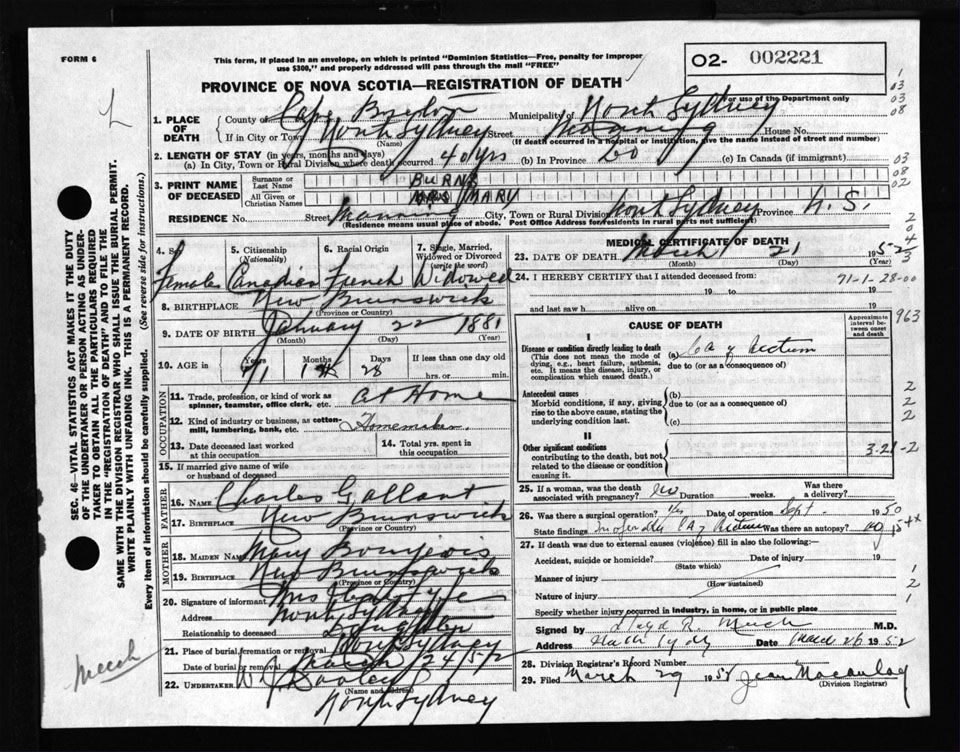 FORM 6
This form, if placed in an envelope, on which is printed "Dominion Statistics—Free, penalty for improper
use $300," and properly addressed will pass through the mail "FREE"
O2- 002221
PROVINCE OF NOVA SCOTIA—REGISTRATION OF DEATH
For use of the Department only
1. PLACE OF DEATH
County of Cape Breton Municipality of North Sydney
If in City or Town North Sydney Street Manning House No.
(Name) (If death occurred in a hospital or institution, give the name instead of street and number)
2. LENGTH OF STAY (in years, months and days)
(a) In City, Town or Rural Division where death occurred 40 yrs (b) In Province (c) In Canada (if immigrant)
3. PRINT NAME OF DECEASED
Surname or Last Name BURNS
All Given or Christian Names MRS MARY
RESIDENCE No. Street Manning City, Town or Rural Division North Sydney Province N.S.
(Residence means usual place of abode. Post Office Address for residents in rural parts not sufficient)
4. Female
5. Citizenship (Nationality) Canadian
6. Racial Origin French
7. Single, Married, Widowed or Divorced (write the word) Widowed
8. BIRTHPLACE New Brunswick
(Province or Country)
9. DATE OF BIRTH January 22 1881
(Month) (Day) (Year)
10. AGE in Years 71 Months 1 Days 28 If less than one day old
hrs. or min.
OCCUPATION
11. Trade, profession, or kind of work as spinner, teamster, office clerk, etc. At Home
12. Kind of industry or business, as cotton mill, lumbering, bank, etc. Homemaker
13. Date deceased last worked at this occupation
14. Total yrs. spent in this occupation
15. If married give name of wife or husband of deceased
FATHER
16. NAME Charles Gallant
17. BIRTHPLACE New Brunswick
(Province or Country)
MOTHER
18. MAIDEN NAME Mary Bourgeois
19. BIRTHPLACE New Brunswick
(Province or Country)
20. Signature of informant Mrs
Address North Sydney
Relationship to deceased Daughter
21. Place of burial, cremation or removal North Sydney
Date of burial or removal March 24 1952
22. UNDERTAKER W J Dooley
(Name and address)
North Sydney
MEDICAL CERTIFICATE OF DEATH
23. DATE OF DEATH March 21 1952
(Month) (Day) (Year)
24. I HEREBY CERTIFY that I attended deceased from
71-1-28-00
19 to 19
and last saw h alive on 19
CAUSE OF DEATH
Approximate interval between onset and death
I
Disease or condition directly leading to death (a) Ca of rectum
(This does not mean the mode of dying, e.g., heart failure, asthenia, etc. It means the disease, injury, or complication which caused death.)
due to (or as a consequence of)
Antecedent causes (b)
Morbid conditions, if any, giving rise to the above cause, stating the underlying condition last.
due to (or as a consequence of)
(c)
II
Other significant conditions
contributing to the death, but not related to the disease or condition causing it.
3-21-2
25. If a woman, was the death associated with pregnancy? no Duration weeks. Was there a delivery?
26. Was there a surgical operation? yes Date of operation Sept. 1950
State findings Inoperable Ca of rectum Was there an autopsy? no
27. If death was due to external causes (violence) fill in also the following:
Accident, suicide or homicide? Date of injury 19
(State which)
Manner of injury
(How sustained)
Nature of injury
Specify whether injury occurred in industry, in home, or in public place
Signed by Lloyd R. Meech M.D.
Address North Sydney Date March 26 1952
28. Division Registrar's Record Number
29. Filed March 29 195 Jean Macaulay
(Division Registrar)
SEC. 46—VITAL STATISTICS ACT MAKES IT THE DUTY
OF THE UNDERTAKER OR PERSON ACTING AS UNDER-
TAKER TO OBTAIN ALL THE PARTICULARS REQUIRED
IN THE "REGISTRATION OF DEATH" AND TO FILE THE
SAME WITH THE DIVISION REGISTRAR WHO SHALL ISSUE THE BURIAL PERMIT.
WRITE PLAINLY WITH UNFADING INK. THIS IS A PERMANENT RECORD.
Every item of information should be carefully supplied. (See reverse side for instructions.)
meech
1
03
08
03
08
02
2
0
4
3
963
2
2
2
1
2
1